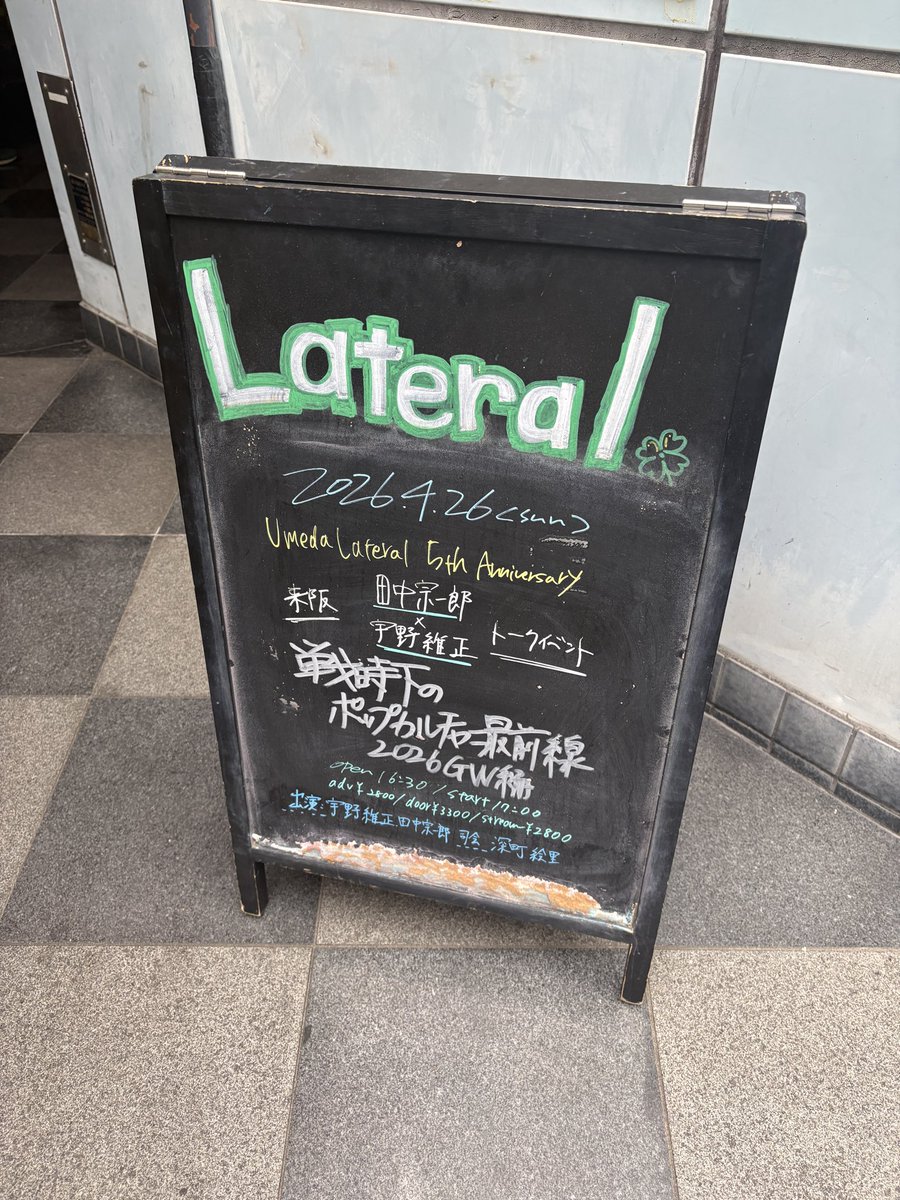 Lateral
2026.4.26(sun)
Umeda Lateral 5th Anniversary
来阪 田中宗一郎
×
宇野維正 トークイベント
戦時下の
ポップカルチャー最前線
2026GW編
open 16:30 / start 17:00
adv¥2800/door¥3300/stream¥2800
出演:宇野維正、田中宗一郎 司会:深町絵里